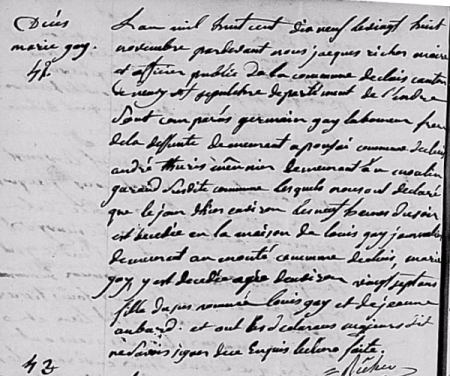 Décès
marie gay.
48.
L'an mil huit cent dix neuf le vingt huit
novembre pardevant nous jacques riches maire
et officier public de la commune de cluis canton
de neuvy st sepulchre departement de l'indre
sont comparés germain gay laboureur frere
de la deffunte demeurant a commune de cluis
andré meunier demeurant au moulin
garaud susdite commune lesquels nous ont declaré
que le jour d'hier environ les neuf heures du soir
est decedée en la maison de louis gay journalier
demeurant au commune de cluis, marie
gay, y est decedée agee d'environ vingt sept ans
fille du louis gay et de jeanne
aubard: et ont les declarans majeurs dit
ne savoir signer de ce enquis lecture faite
Riches
42